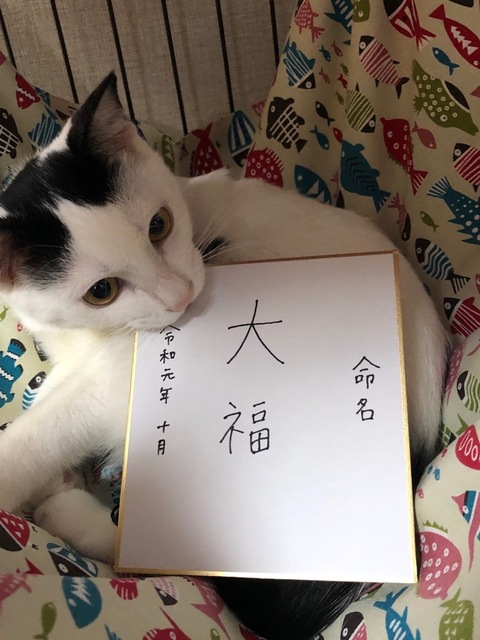 命名
大福
令和元年 十月